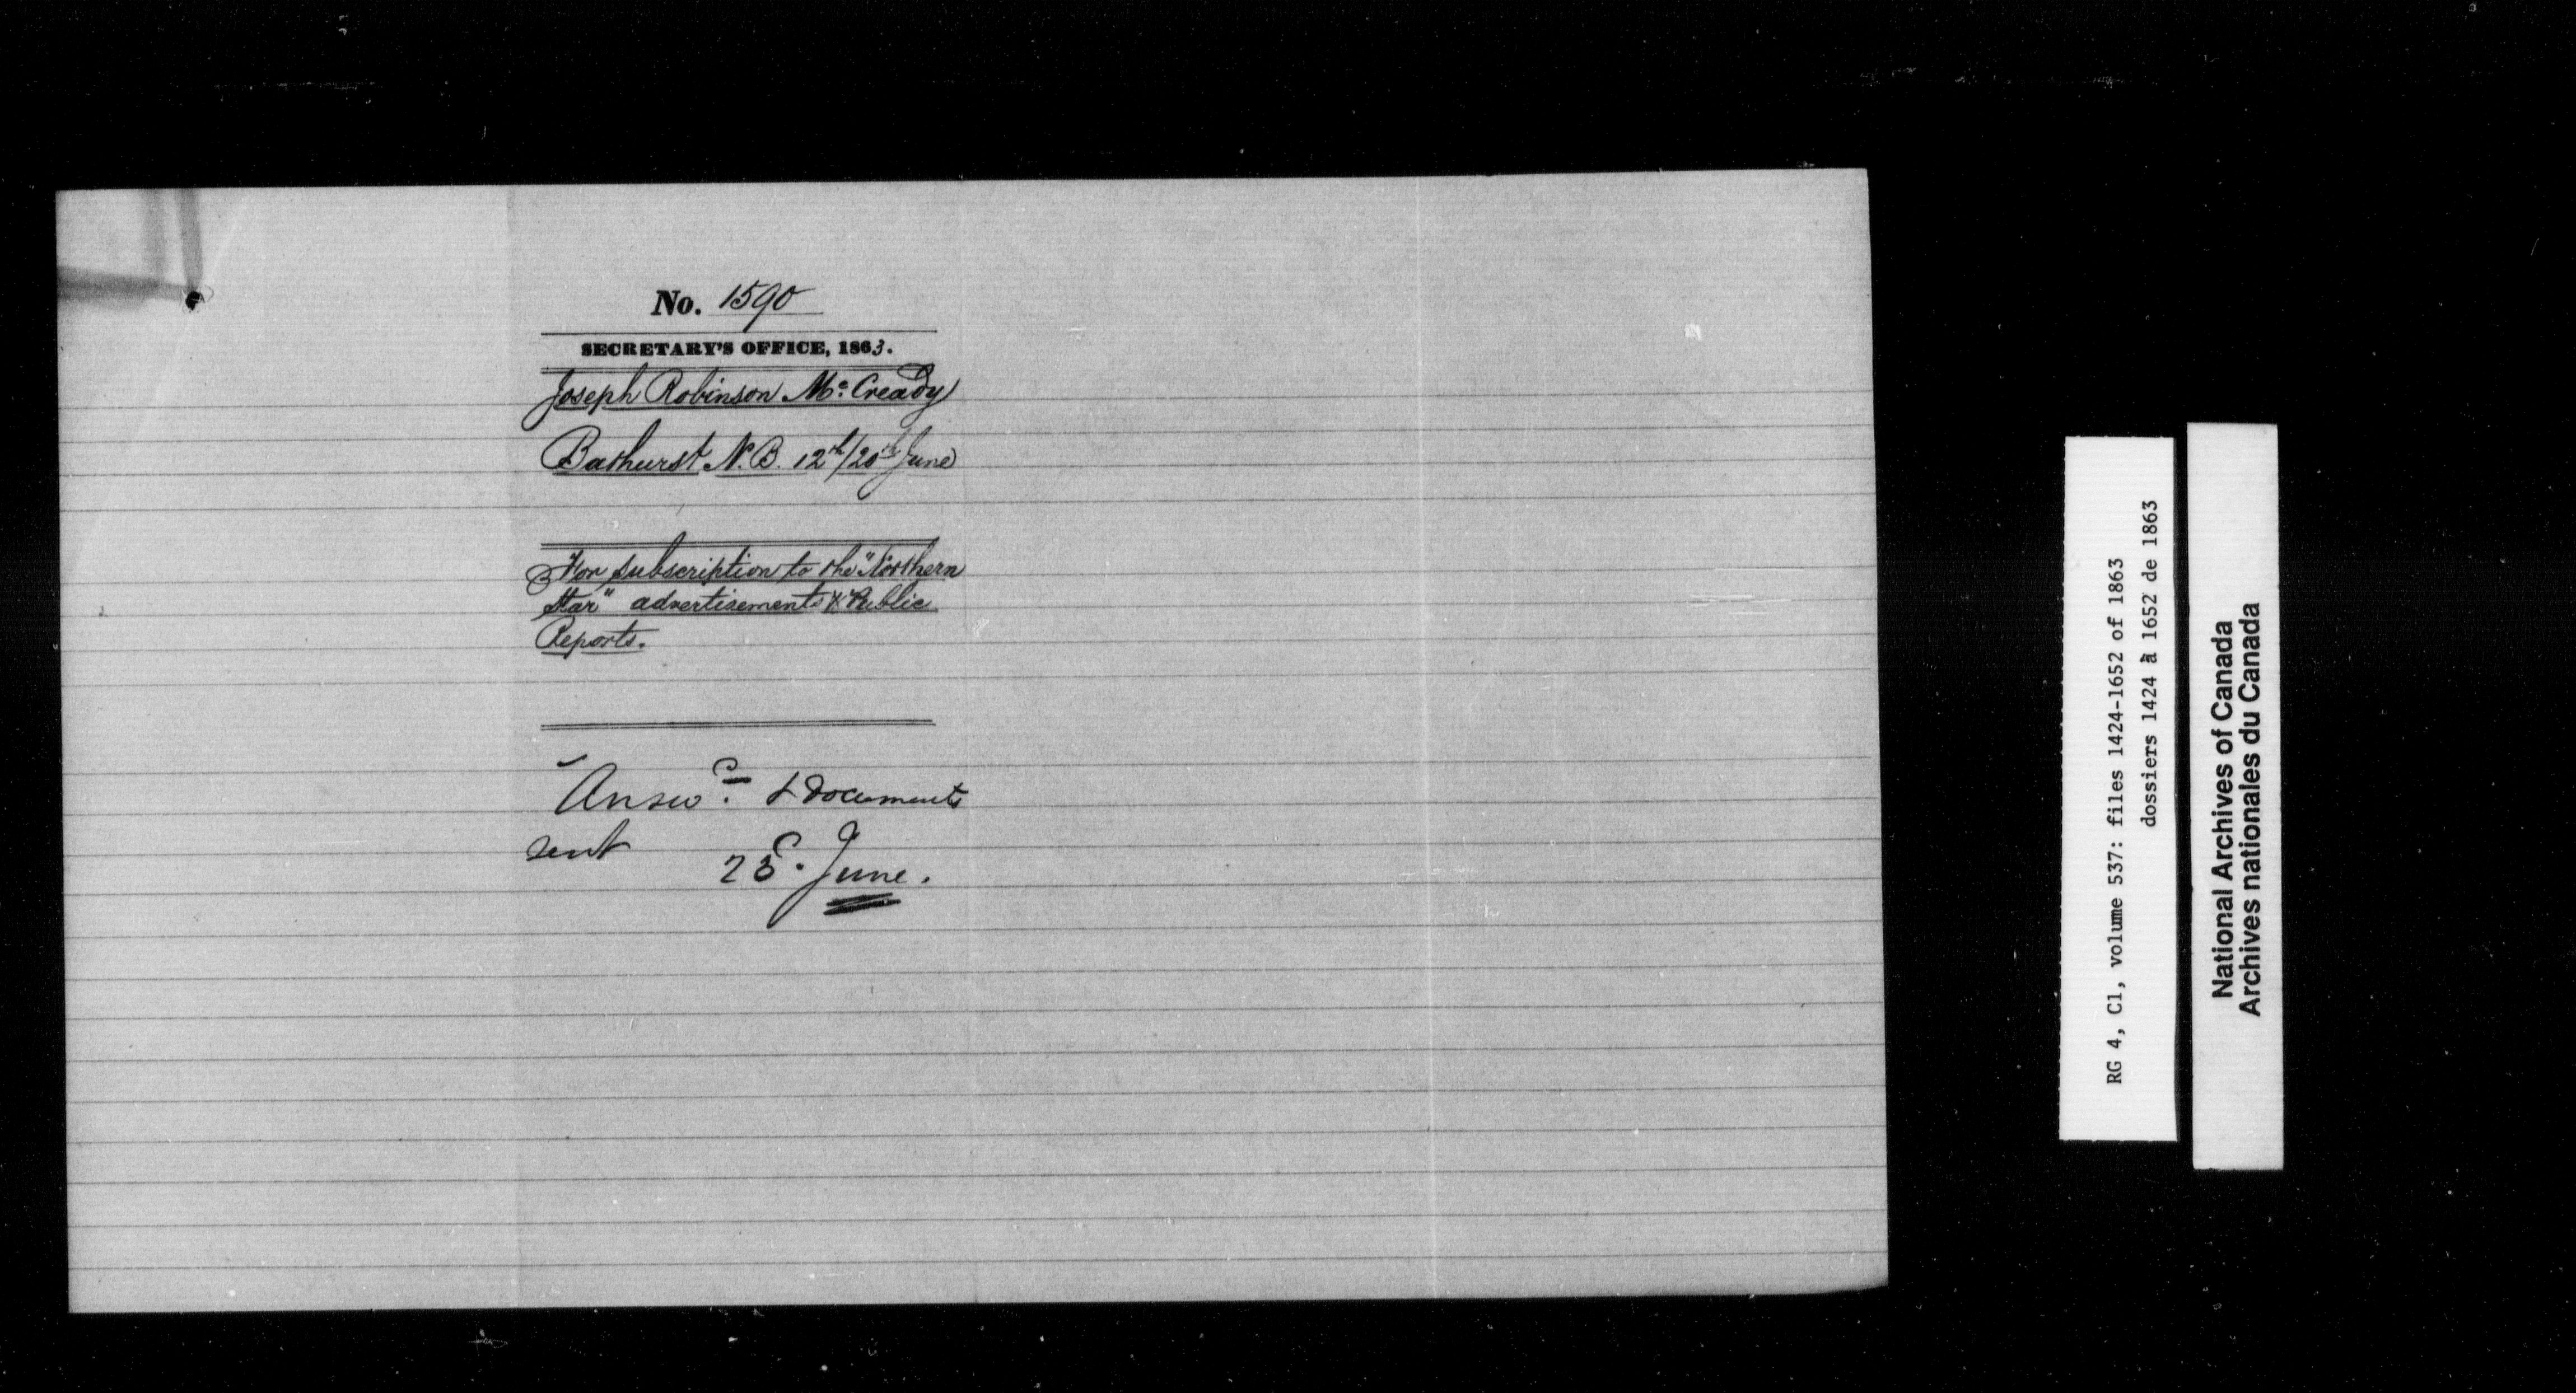 No. 1590
SECRETARY'S OFFICE, 1863.
Joseph Robinson Mc. Cready
Bathurst N.B. 12th/20th June
For subscription to the "Northern
Star" advertisements & Public
Reports.
Answd. & Documents
sent
June.
RG 4, C1, volume 537: files 1424-1652 of 1863
dossiers 1424 à 1652 de 1863
National Archives of Canada
Archives nationales du Canada